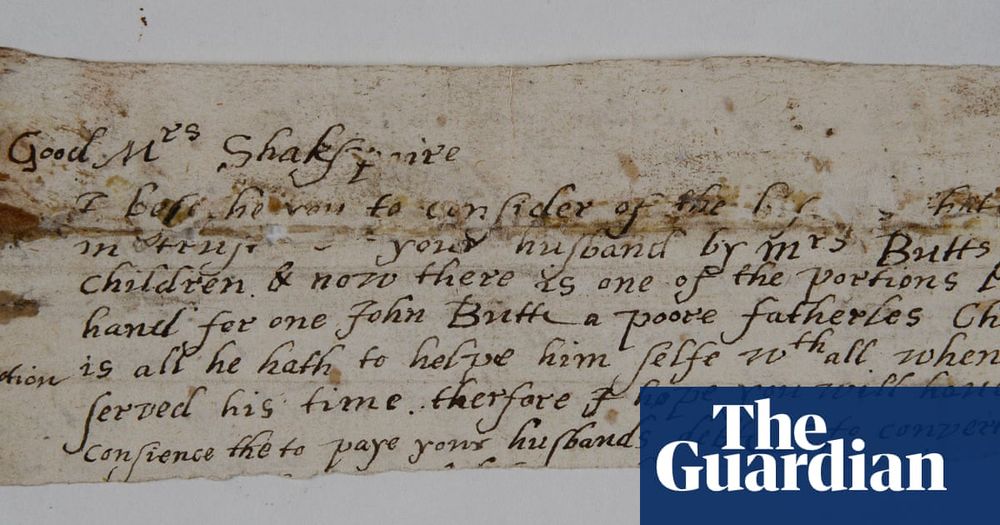 Good Mrs Shakspaire
I bese he you to consider of the
in trust your husband by mrs Butts
children & now there is one of the portions
hand for one John Butte a poore fatherles Ch
ction is all he hath to helpe him selfe wth all when
served his time therfore I hope you will have
Consience the to paye your husbands to
The
Guardian